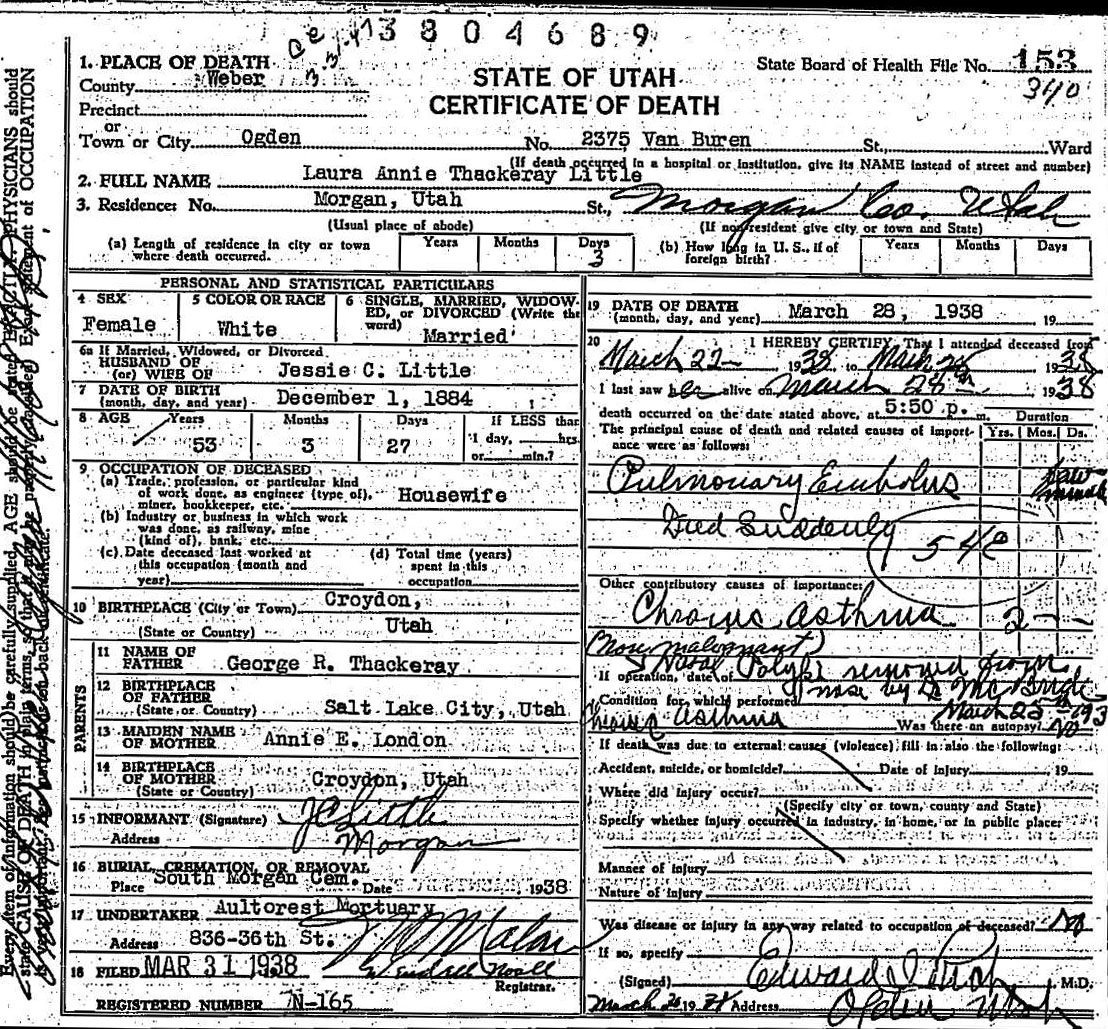 3 8 0 4 6 8 9
1. PLACE OF DEATH
County Weber
Precinct
or
Town or City Ogden No. 2375 Van Buren St., Ward
STATE OF UTAH
CERTIFICATE OF DEATH
State Board of Health File No. 153
340
(If death occurred in a hospital or institution, give its NAME instead of street and number)
2. FULL NAME Laura Annie Thackeray Little
3. Residence: No. Morgan, Utah St., Morgan Co. Utah
(Usual place of abode) (If nonresident give city or town and State)
(a) Length of residence in city or town where death occurred. Years Months Days 3
(b) How long in U. S., if of foreign birth? Years Months Days
PERSONAL AND STATISTICAL PARTICULARS
4 SEX Female
5 COLOR OR RACE White
6 SINGLE, MARRIED, WIDOWED, or DIVORCED (Write the word) Married
6a If Married, Widowed, or Divorced
HUSBAND OF
(or) WIFE OF Jessie C. Little
7 DATE OF BIRTH
(month, day, and year) December 1, 1884
8 AGE Years 53 Months 3 Days 27 If LESS than 1 day, hrs. or min.?
9 OCCUPATION OF DECEASED
(a) Trade, profession, or particular kind of work done, as engineer (type of), miner, bookkeeper, etc. Housewife
(b) Industry or business in which work was done, as railway, mine (kind of), bank, etc.
(c) Date deceased last worked at this occupation (month and year)
(d) Total time (years) spent in this occupation
10 BIRTHPLACE (City or Town) Croydon,
(State or Country) Utah
PARENTS
11 NAME OF FATHER George R. Thackeray
12 BIRTHPLACE OF FATHER
(State or Country) Salt Lake City, Utah
13 MAIDEN NAME OF MOTHER Annie E. London
14 BIRTHPLACE OF MOTHER
(State or Country) Croydon, Utah
15 INFORMANT (Signature) J C Little
Address Morgan
16 BURIAL, CREMATION, OR REMOVAL
Place South Morgan Cem. Date 1938
17 UNDERTAKER Aultorest Mortuary
Address 836-36th St.
18 FILED MAR 31 1938
Registrar.
REGISTERED NUMBER N-165
19 DATE OF DEATH
(month, day, and year) March 28, 1938 19
20 I HEREBY CERTIFY, That I attended deceased from
March 22 1938 to March 28 1938
I last saw her alive on March 28th 1938
death occurred on the date stated above, at 5:50 p. m. Duration
The principal cause of death and related causes of importance were as follows: Yrs. Mos. Ds.
Pulmonary Embolus few minutes
Died Suddenly
54c
Other contributory causes of importance:
Chronic asthma 2 - -
(Non malignant)
If operation, date of Nasal Polypi removed from
nose by Dr McBride
Condition for which performed March 25th 193
Asthma Was there an autopsy? No
If death was due to external causes (violence) fill in also the following:
Accident, suicide, or homicide? Date of injury 19
Where did injury occur?
(Specify city or town, county and State)
Specify whether injury occurred in industry, in home, or in public place
Manner of injury
Nature of injury
Was disease or injury in any way related to occupation of deceased? No
If so, specify
(Signed) Edward M.D.
March 19 Address Ogden Utah